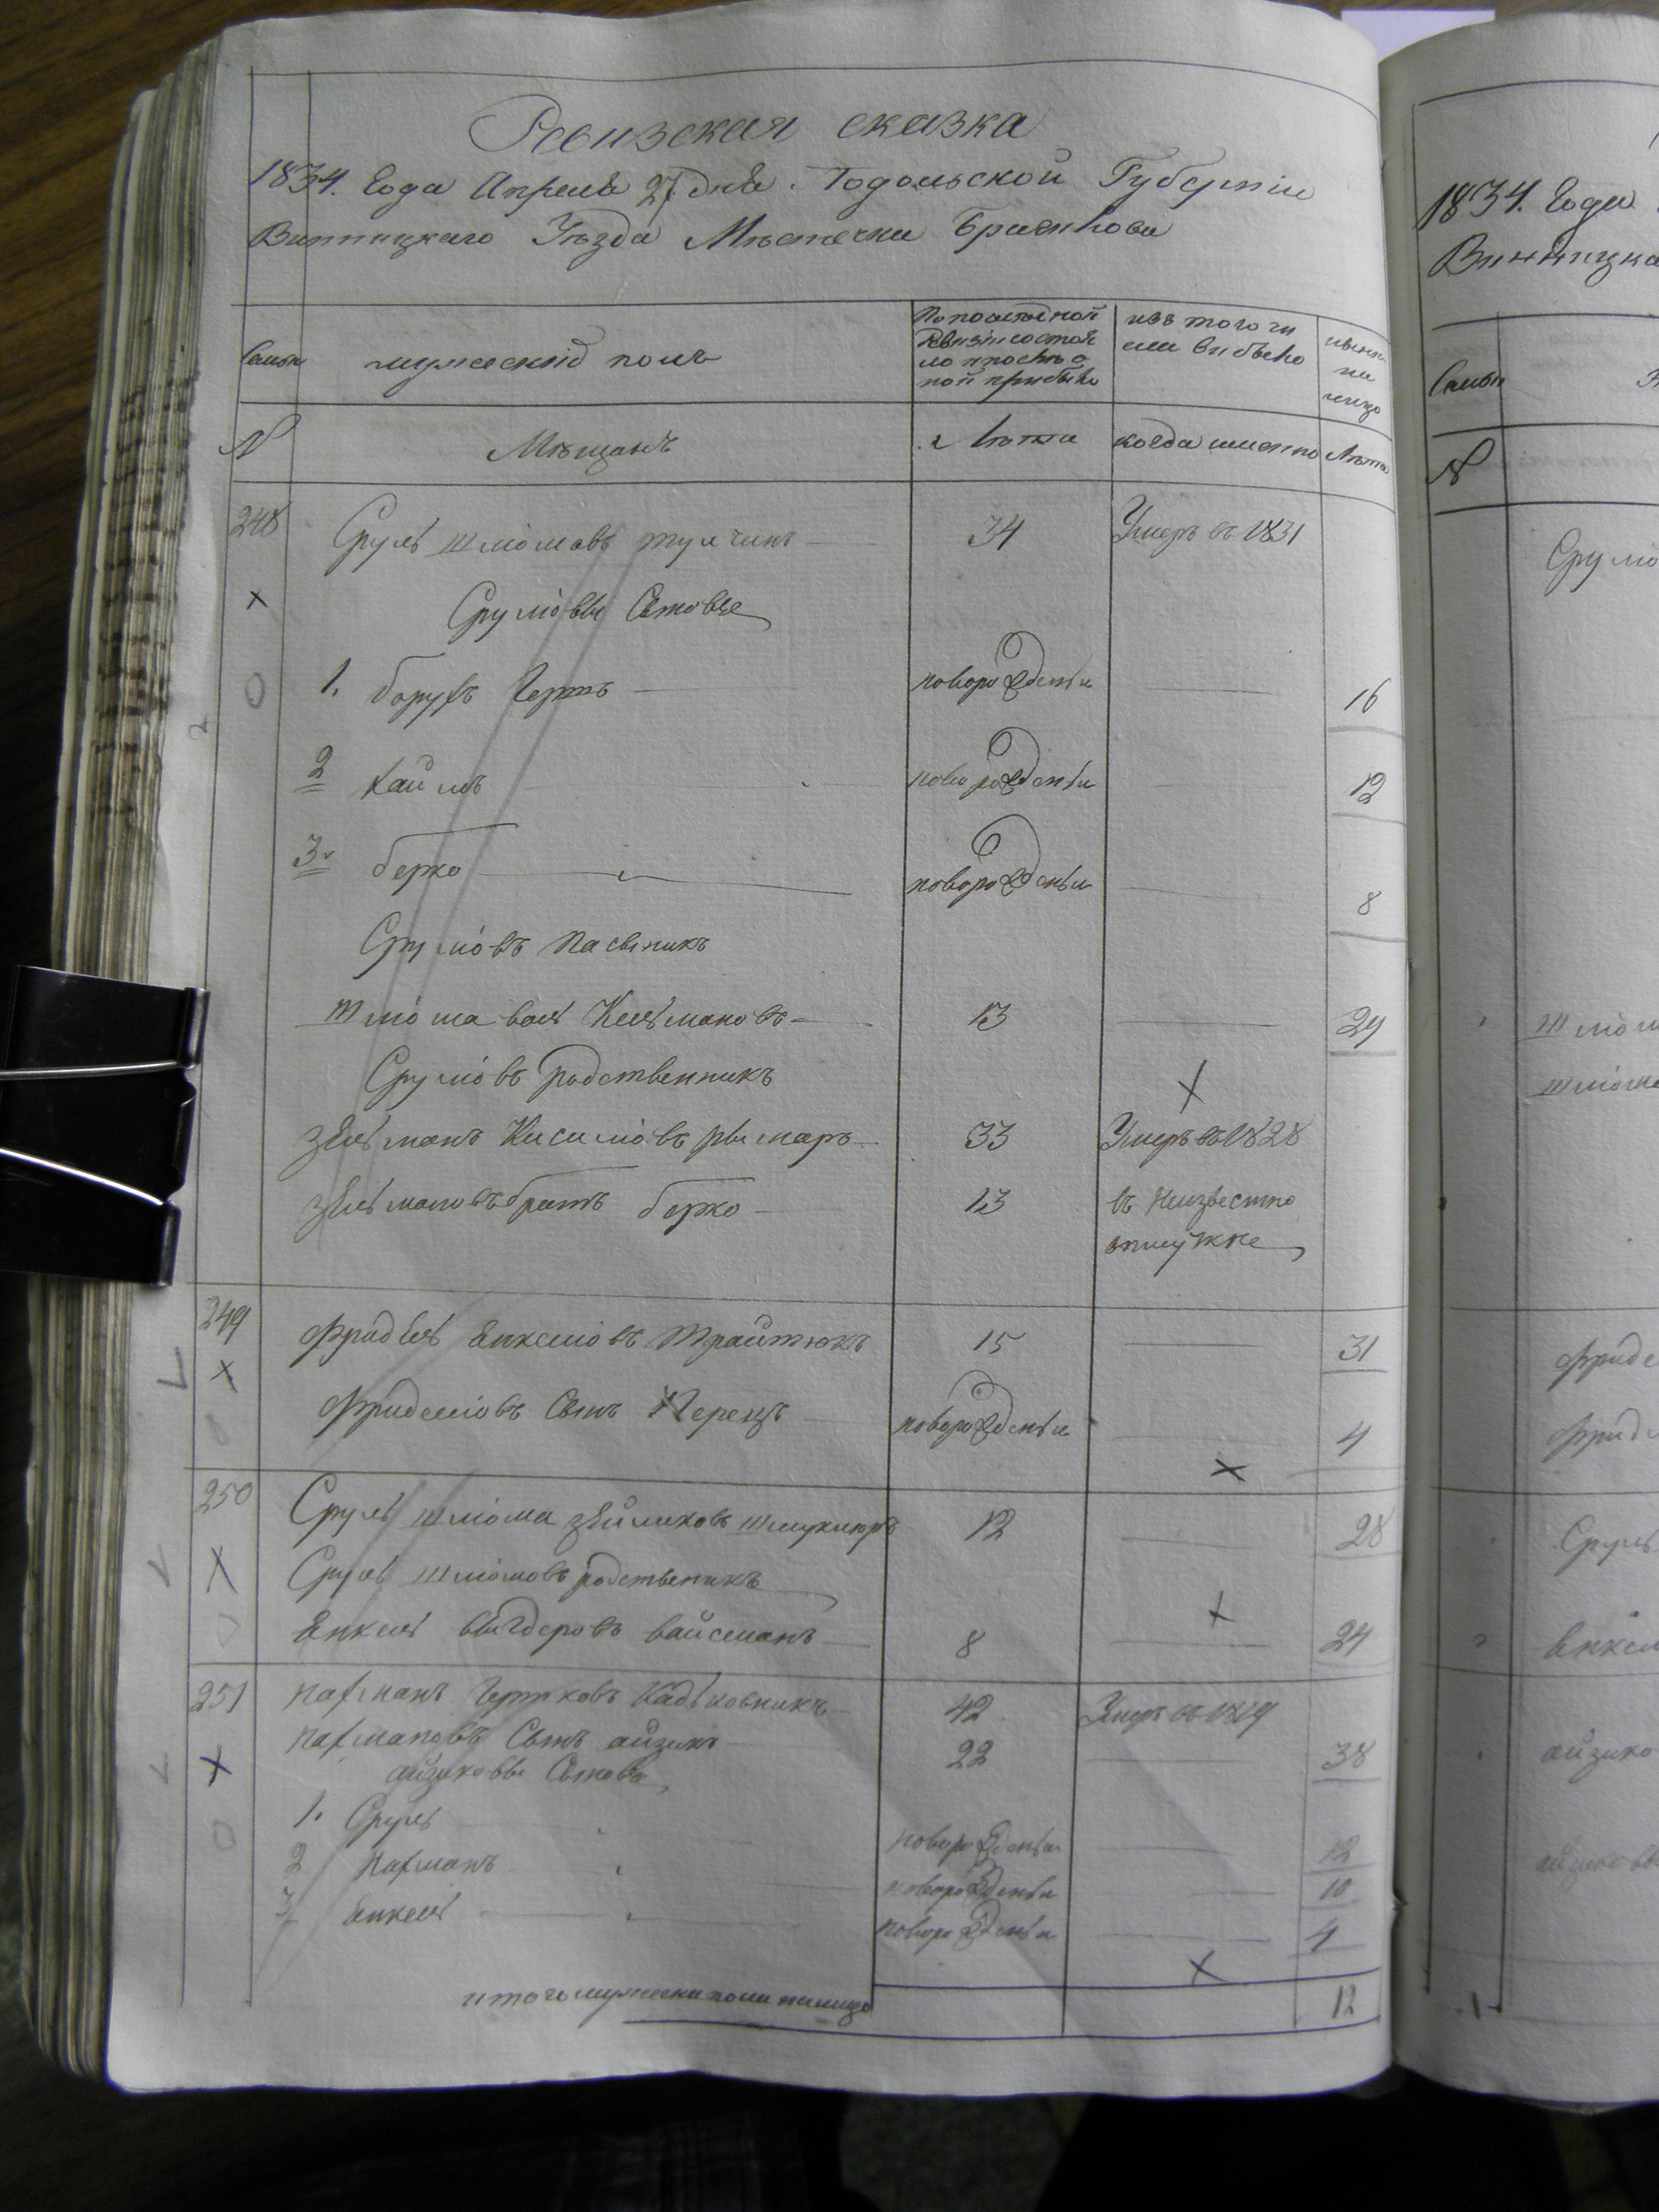 Ревизская сказка
1834. Года Апреля 27 дня. Подольской Губернiи
Винницкаго Уѣзда Мѣстечка Браилова
Семьи
мужескiй полъ
По последной
Ревизiи состоя
ло и после о
ной прибыло
изъ того чи
сла выбыло
нынѣ
на
лицо
N
Мѣщанъ
Лѣта
когда именно
Лѣта
248
Сруль Шлiомовъ Тулчинъ
34
Умеръ въ 1831
Срулiовы Сыновье
1. Борухъ Гершъ
новорожденъи
16
2 Хаимъ
новорожденъи
12
3. Берко
новорожденъи
8
Срулiовъ пасыникъ
Шлiома Кельмановъ
13
29
Срулiовъ родственникъ
Зельманъ Кисилiовъ Рымаръ
33
Умеръ въ 1828
Зельмановъ братъ Берко
13
въ неизвестно
отлучке
249
Фридель Енкелiовъ Трайтюкъ
15
31
Фриделiовъ Сынъ Перецъ
новорожденъи
4
250
Сруль Шлiома Зейликовъ
12
28
Сруль Шлiомовъ родственикъ
Енкель Вигдеровъ Вайсманъ
8
24
251
Нахманъ Гершковъ
42
Умеръ въ 1819
Нахмановъ Сынъ Айзикъ
22
38
Айзиковы Сыновья
1. Сруль
новорожденъи
12
2 Нахманъ
новорожденъи
10
3 Енкель
новорожденъи
4
итого мужеска пола налицо
12
1834. Года
Винницка
Семьи
N
Срулiо
Шлiом
Шлiома
Фриде
Фриде
Сруль
Енкел
Айзико
Айзиковы